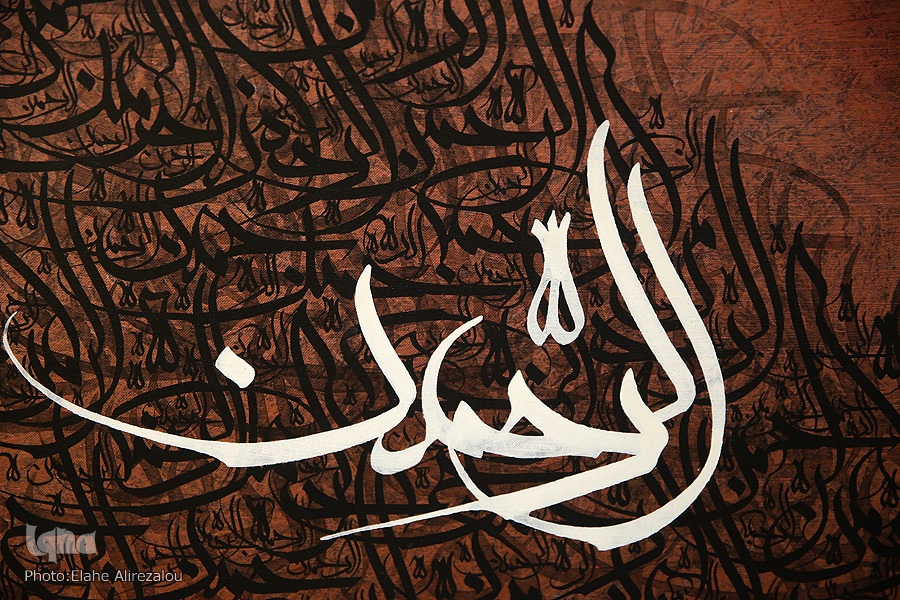 الرحمن
Iqna
Photo:Elahe Alirezalou